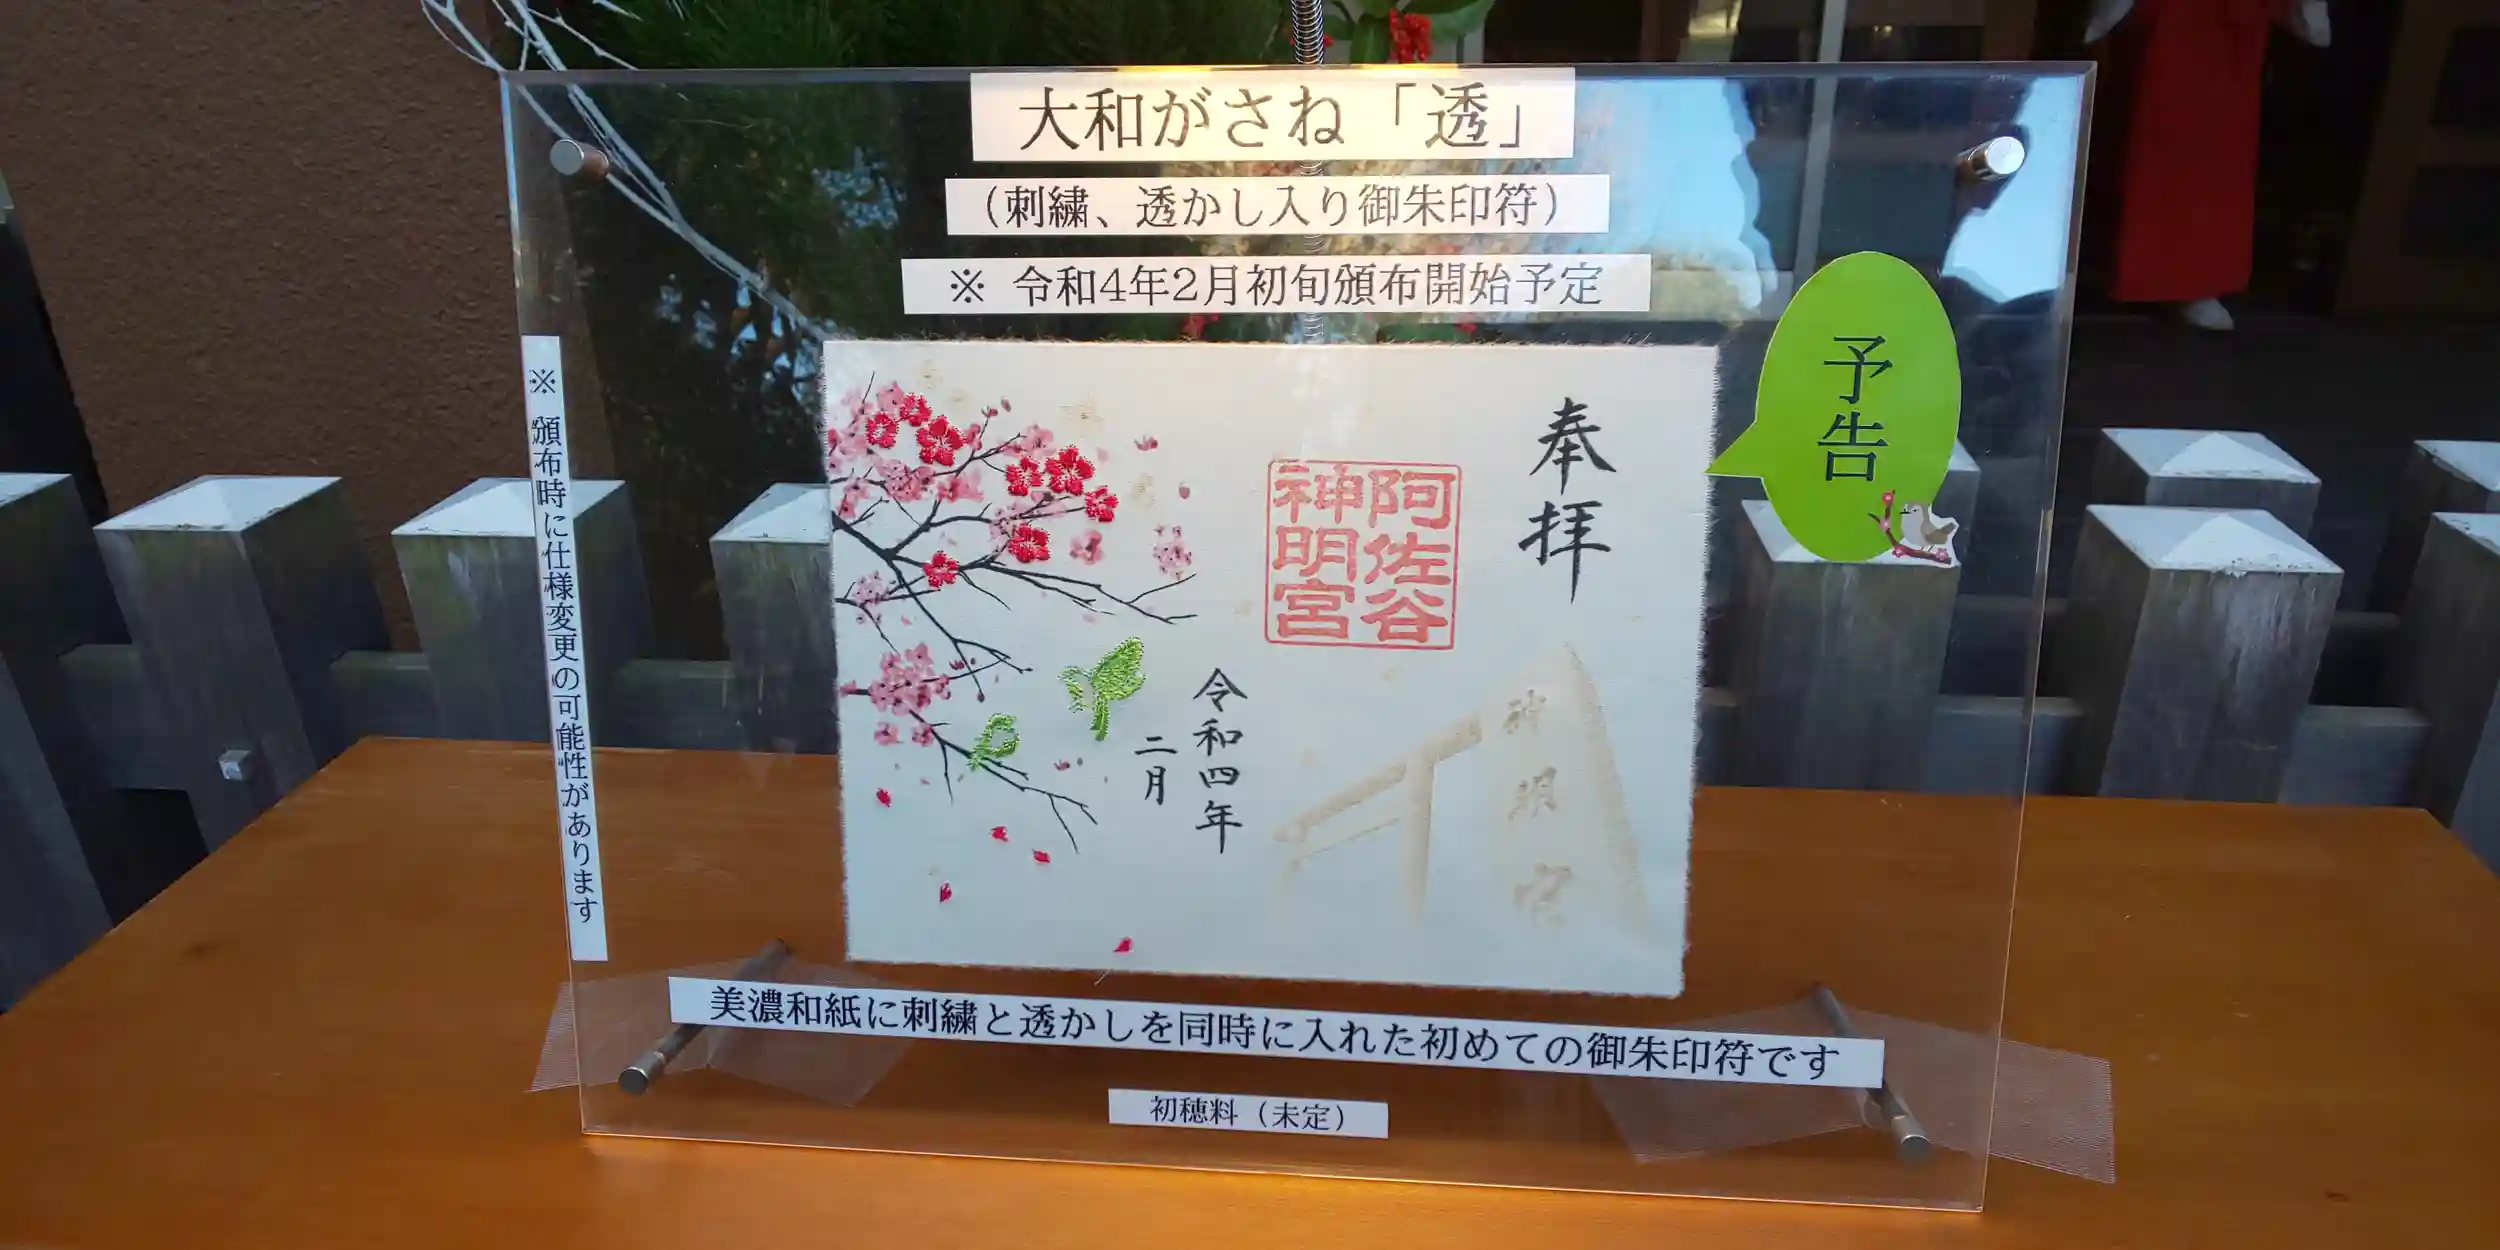 大和がさね「透」
（刺繍、透かし入り御朱印符）
※ 令和4年2月初旬頒布開始予定
予告
※ 頒布時に仕様変更の可能性があります
奉拝
阿佐谷
神明宮
神明宮
令和四年
二月
美濃和紙に刺繍と透かしを同時に入れた初めての御朱印符です
初穂料（未定）